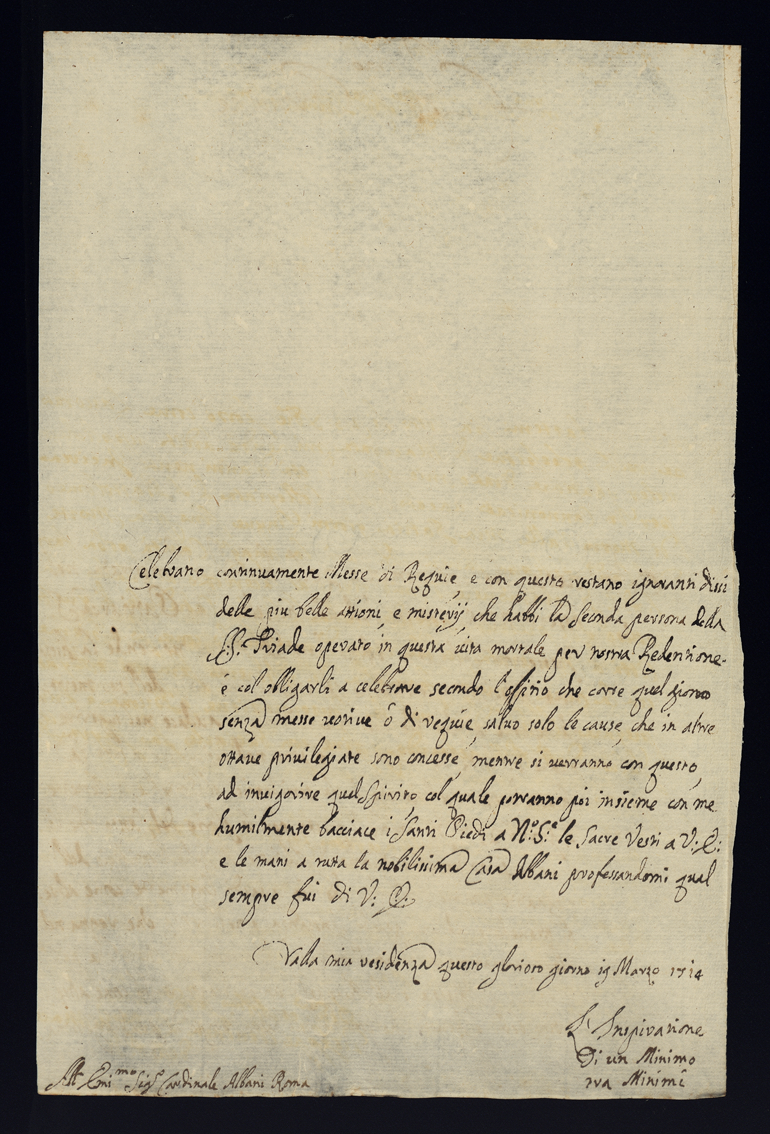 Celebrano continuamente Messe di Requie, e con questo restano ignoranti dissi
delle piu belle attioni, e misterij che habbi la seconda persona della
SS. Triade operato in questa vita mortale per nostra Redentione.
e col obligarli a celebrare secondo l'offitio che corre quel giorno
senza messe votive ò di requie, salvo solo le cause, che in altre
ottave privilegiate sono concesse, mentre si verranno con questo
ad invigorire quel Spirito col quale potranno poi insieme con me
humilmente bacciare i Santi Piedi a N:ro S:re le sacre Vesti a V: E:
e le mani a tutta la nobilissima Casa Albani professandomi qual
sempre fui di V: E.
Dalla mia residenza questo glorioso giorno 19 Marzo 1714
L'Inspiratione
Di un Minimo
tra Minimi
All Emi:mo Sig:r Cardinale Albani Roma